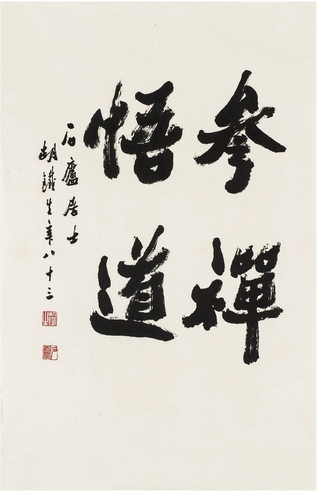 参禪
悟道
石廬居士
胡鐵生年八十三